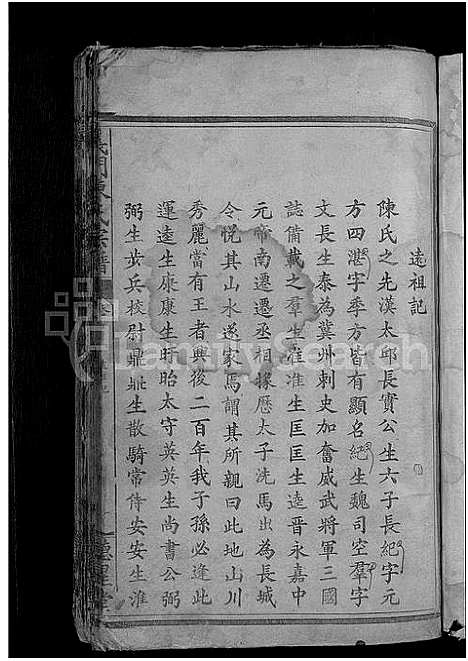 遠祖記
陳氏之先漢太邱長實公生六子長紀字元
方四湛字季方皆有顯名紀生魏司空羣字
文長生泰為冀州刺史加奮威武將軍三國
誌備載之羣生准准生匡匡生逵晉永嘉中
元帝南遷遷丞相掾歷太子洗馬出為長城
令悅其山水遂家焉謂其所親曰此地山川
秀麗當有王者興後二百年我子孫必逢此
運逵生康康生盱眙太守英英生尚書公弼
弼生步兵校尉鼎鼎生散騎常侍安安生淮
陳氏宗譜
FamilySearch